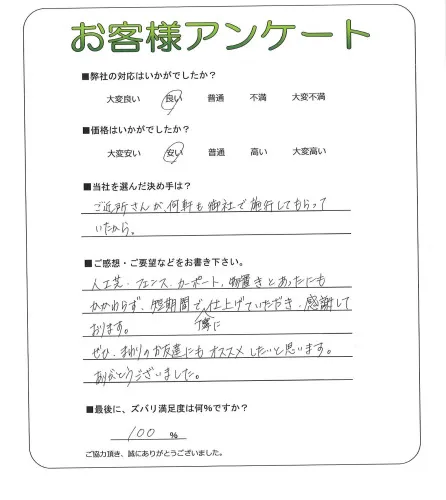 お客様アンケート
■弊社の対応はいかがでしたか？
大変良い 良い 普通 不満 大変不満
■価格はいかがでしたか？
大変安い 安い 普通 高い 大変高い
■当社を選んだ決め手は？
ご近所さんが、何軒も御社で施行してもらって
いたから。
■ご感想・ご要望などをお書き下さい。
人工芝・フェンス・カーポート、物置きとあったにも
かかわらず、短期間で、仕上げていただき、感謝して
おります。
に
ぜひ、まわりのお友達にもオススメしたいと思います。
ありがとうございました。
■最後に、ズバリ満足度は何％ですか？
100 ％
ご協力頂き、誠にありがとうございました。